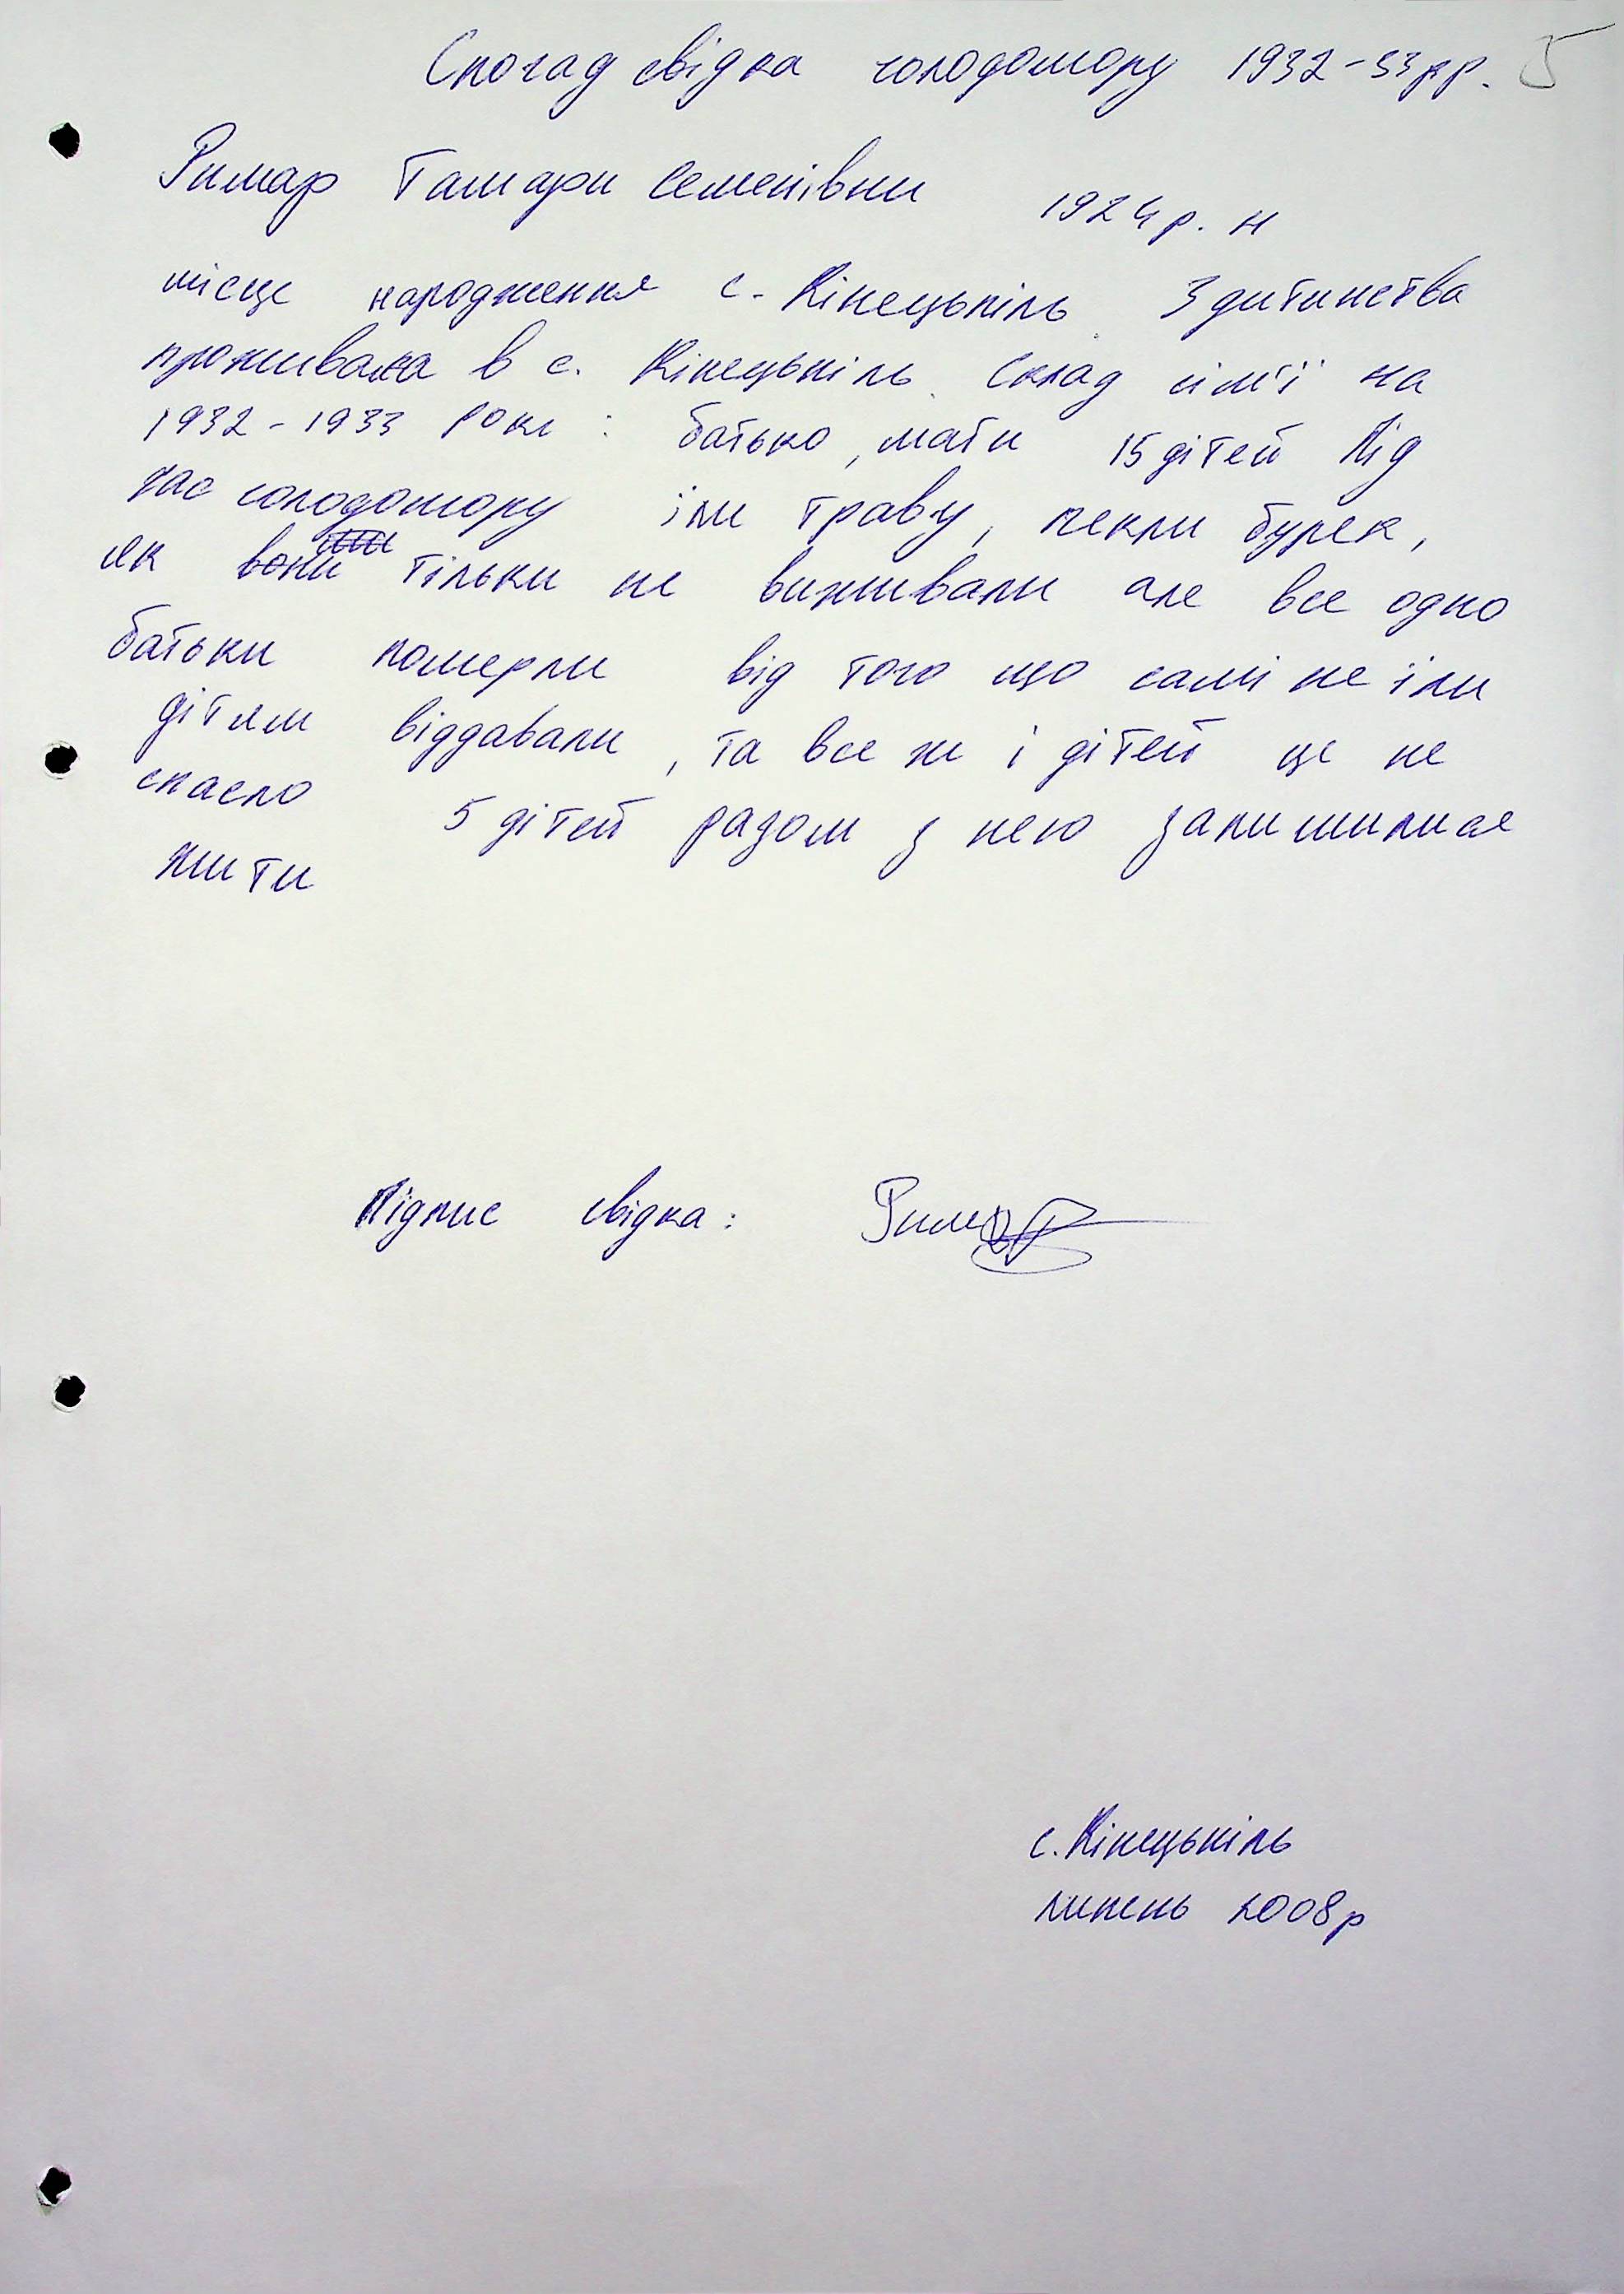 Спогад свідка голодомору 1932-33рр. 5
Римар Тамари Семенівни 1924р. н
місце народження с. Кінецьпіль. З дитинства
проживала в с. Кінецьпіль. Склад сім'ї на
1932-1933 роки: батько, мати 15 дітей Під
час голодомору їли траву, пекли буряк,
як вони тільки не виживали але все одно
батьки померли від того що самі не їли
дітям віддавали, та все ж і дітей це не
спасло 5 дітей разом з нею залишилися
жити
Підпис свідка: Римар
с. Кінецьпіль
липень 2008р